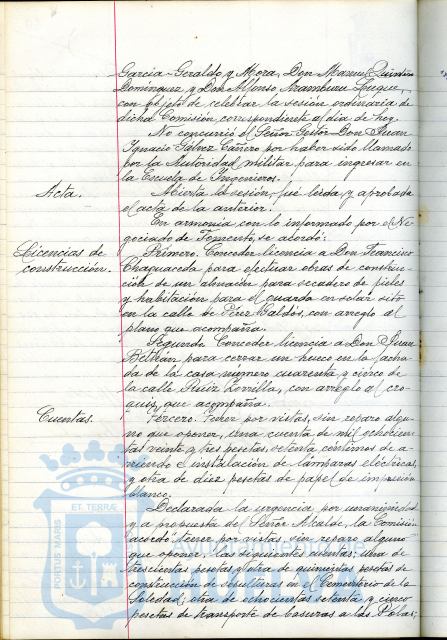 García-Geraldo y Mora, Don Manuel Quintero
Domínguez y Don Alfonso Aramburu Luque,
con objeto de celebrar la sesión ordinaria de
dicha Comisión, correspondiente al día de hoy.
No concurrió el Señor Gestor Don Juan
Ignacio Gálvez Cañero por haber sido llamado
por la Autoridad militar para ingresar en
la Escuela de Ingenieros.
Acta.
Abierta la sesión, fué leída y aprobada
el acta de la anterior.
En armonía con lo informado por el Ne-
gociado de Fomento, se acordó:
Licencias de
construcción.
Primero. Conceder licencia a Don Francisco
Chaguaceda para efectuar obras de construc-
ción de un almacén para secadero de pieles
y habitación para el guarda en solar sito
en la calle de Pérez Galdós, con arreglo al
plano que acompaña.
Segundo. Conceder licencia a Don Juan
Beltrán para cerrar un hueco en la facha-
da de la casa número cuarenta y cinco de
la calle Ruiz Zorrilla, con arreglo al cro-
quis que acompaña.
Cuentas.
Tercero. Tener por vistas, sin reparo algu-
no que oponer, una cuenta de mil ochocien-
tas veinte y tres pesetas, setenta céntimos de a-
rriendo e instalación de lámparas eléctricas,
y otra de diez pesetas de papel de impresión
blanco.
Declarada la urgencia por unanimidad
y a propuesta del Señor Alcalde, la Comisión
acordó tener por vistas, sin reparo alguno
que oponer las siguientes cuentas: una de
trescientas pesetas y otra de quinientas pesetas de
construcción de sepulturas en el Cementerio de la
Soledad; otra de ochocientas setenta y cinco
pesetas de transporte de basuras a las Polas;
PORTUS MARIS ET TERRAE